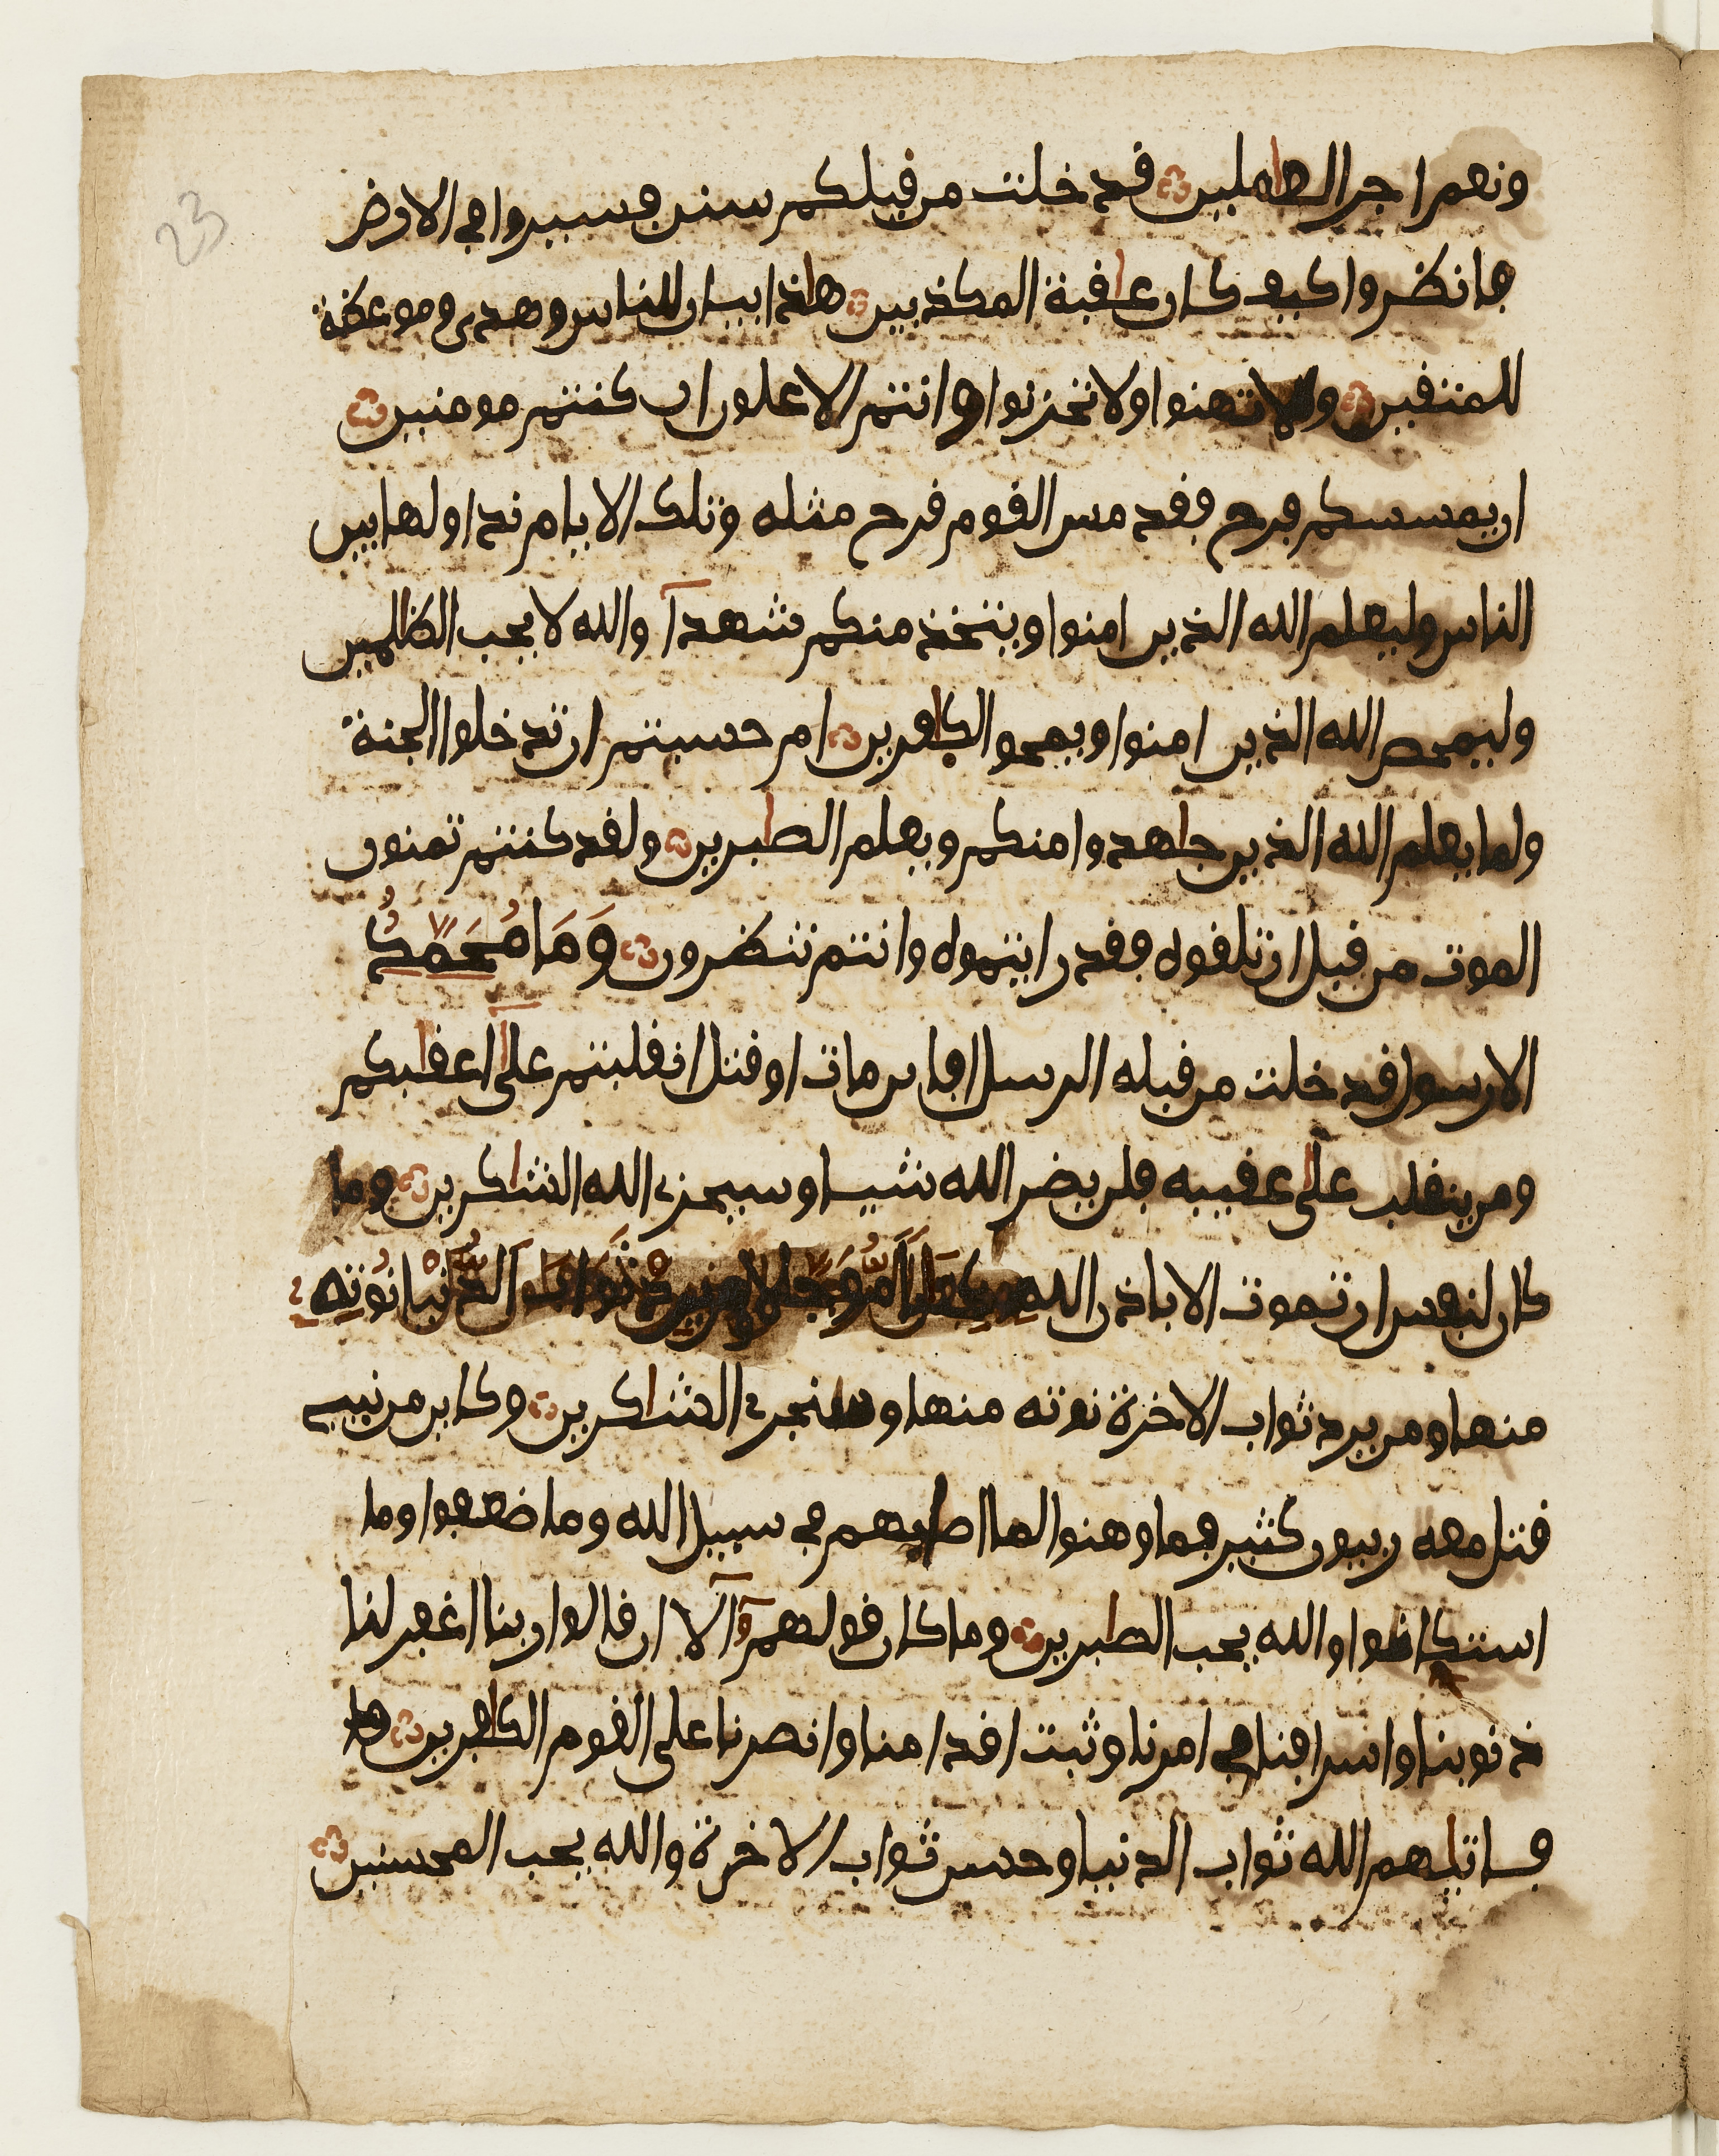 23
ونعم اجر العملين قد خلت من قبلكم سنن فسيروا في الارض
فانظروا كيف كان عاقبة المكذبين هاذا بيان للناس وهدى وموعظة
للمتقين ولا تهنوا ولا تحزنوا وانتم الاعلون ان كنتم مومنين
ان يمسسكم قرح فقد مس القوم قرح مثله وتلك الايام نداولها بين
الناس وليعلم الله الذين امنوا ويتخذ منكم شهدآ والله لا يحب الظلمين
وليمحص الله الذين امنوا ويمحق الكافرين ام حسبتم ان تدخلوا الجنة
ولما يعلم الله الذين جاهدوا منكم ويعلم الصابرين ولقد كنتم تمنون
الموت من قبل ان تلقوه فقد رايتموه وانتم تنظرون وَمَا مُحَمَّدٌ
الا رسول قد خلت من قبله الرسل افاين مات او قتل انقلبتم علىآ اعقابكم
ومن ينقلب على عقبيه فلن يضر الله شيا وسيجزي الله الشاكرين وما
كان لنفس ان تموت الا باذن الله كتابا موجلا ومن يرد ثواب الدنيا نوته
منها ومن يرد ثواب الاخرة نوته منها وسنجزي الشاكرين وكاين من نبي
قتل معه ربيون كثير فما وهنوا لما اصابهم في سبيل الله وما ضعفوا وما
استكانوا والله يحب الصابرين وما كان قولهمۥٓ الآ ان قالوا ربنا اغفر لنا
ذنوبنا واسرافنا في امرنا وثبت اقدامنا وانصرنا على القوم الكافرين فا
فاتيهم الله ثواب الدنيا وحسن ثواب الاخرة والله يحب المحسنين